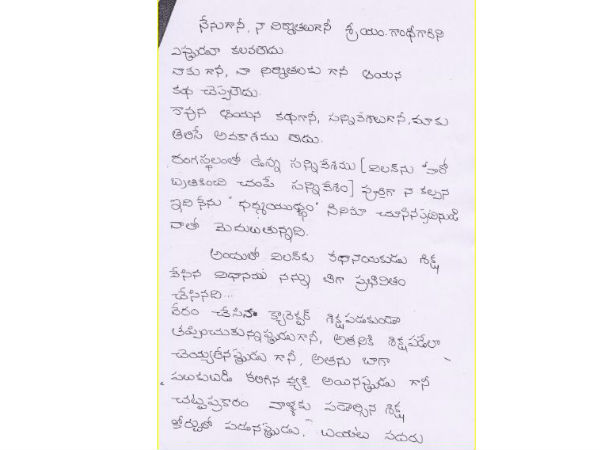 నేనుగానీ, నా నిర్మాతలుగానీ శ్రీ యం. గాంధీగారిని
ఎప్పుడూ కలవలేదు.
నాకు గానీ, నా నిర్మాతలకు గానీ ఆయన
కథ చెప్పలేదు.
కావున ఆయన కథగానీ, సన్నివేశాలుగానీ, మాకు
తెలిసే అవకాశము లేదు.
రంగస్థలంలో ఉన్న సన్నివేశము [విలన్‌ను హీరో
బ్రతికించి చంపే సన్నివేశం] పూర్తిగా నా కల్పన
ఇది నేను 'ధర్మయుద్ధం' సినిమా చూసినప్పటినుండి
నాలో మెదులుతున్నది.
అందులో విలన్‌కు కథానాయకుడు శిక్ష
వేసిన విధానము నన్ను బాగా ప్రభావితం
చేసినది...
నేరం చేసిన క్యారెక్టర్ శిక్షపడకుండా
తప్పించుకున్నప్పుడుగానీ, అతనికి శిక్షపడేలా
చెయ్యలేనప్పుడు గానీ, అతను బాగా
పలుకుబడి కలిగిన వ్యక్తి అయినప్పుడు గానీ
చట్టప్రకారం వాళ్ళకు పడాల్సిన శిక్ష
కోర్టులో పడనప్పుడు,